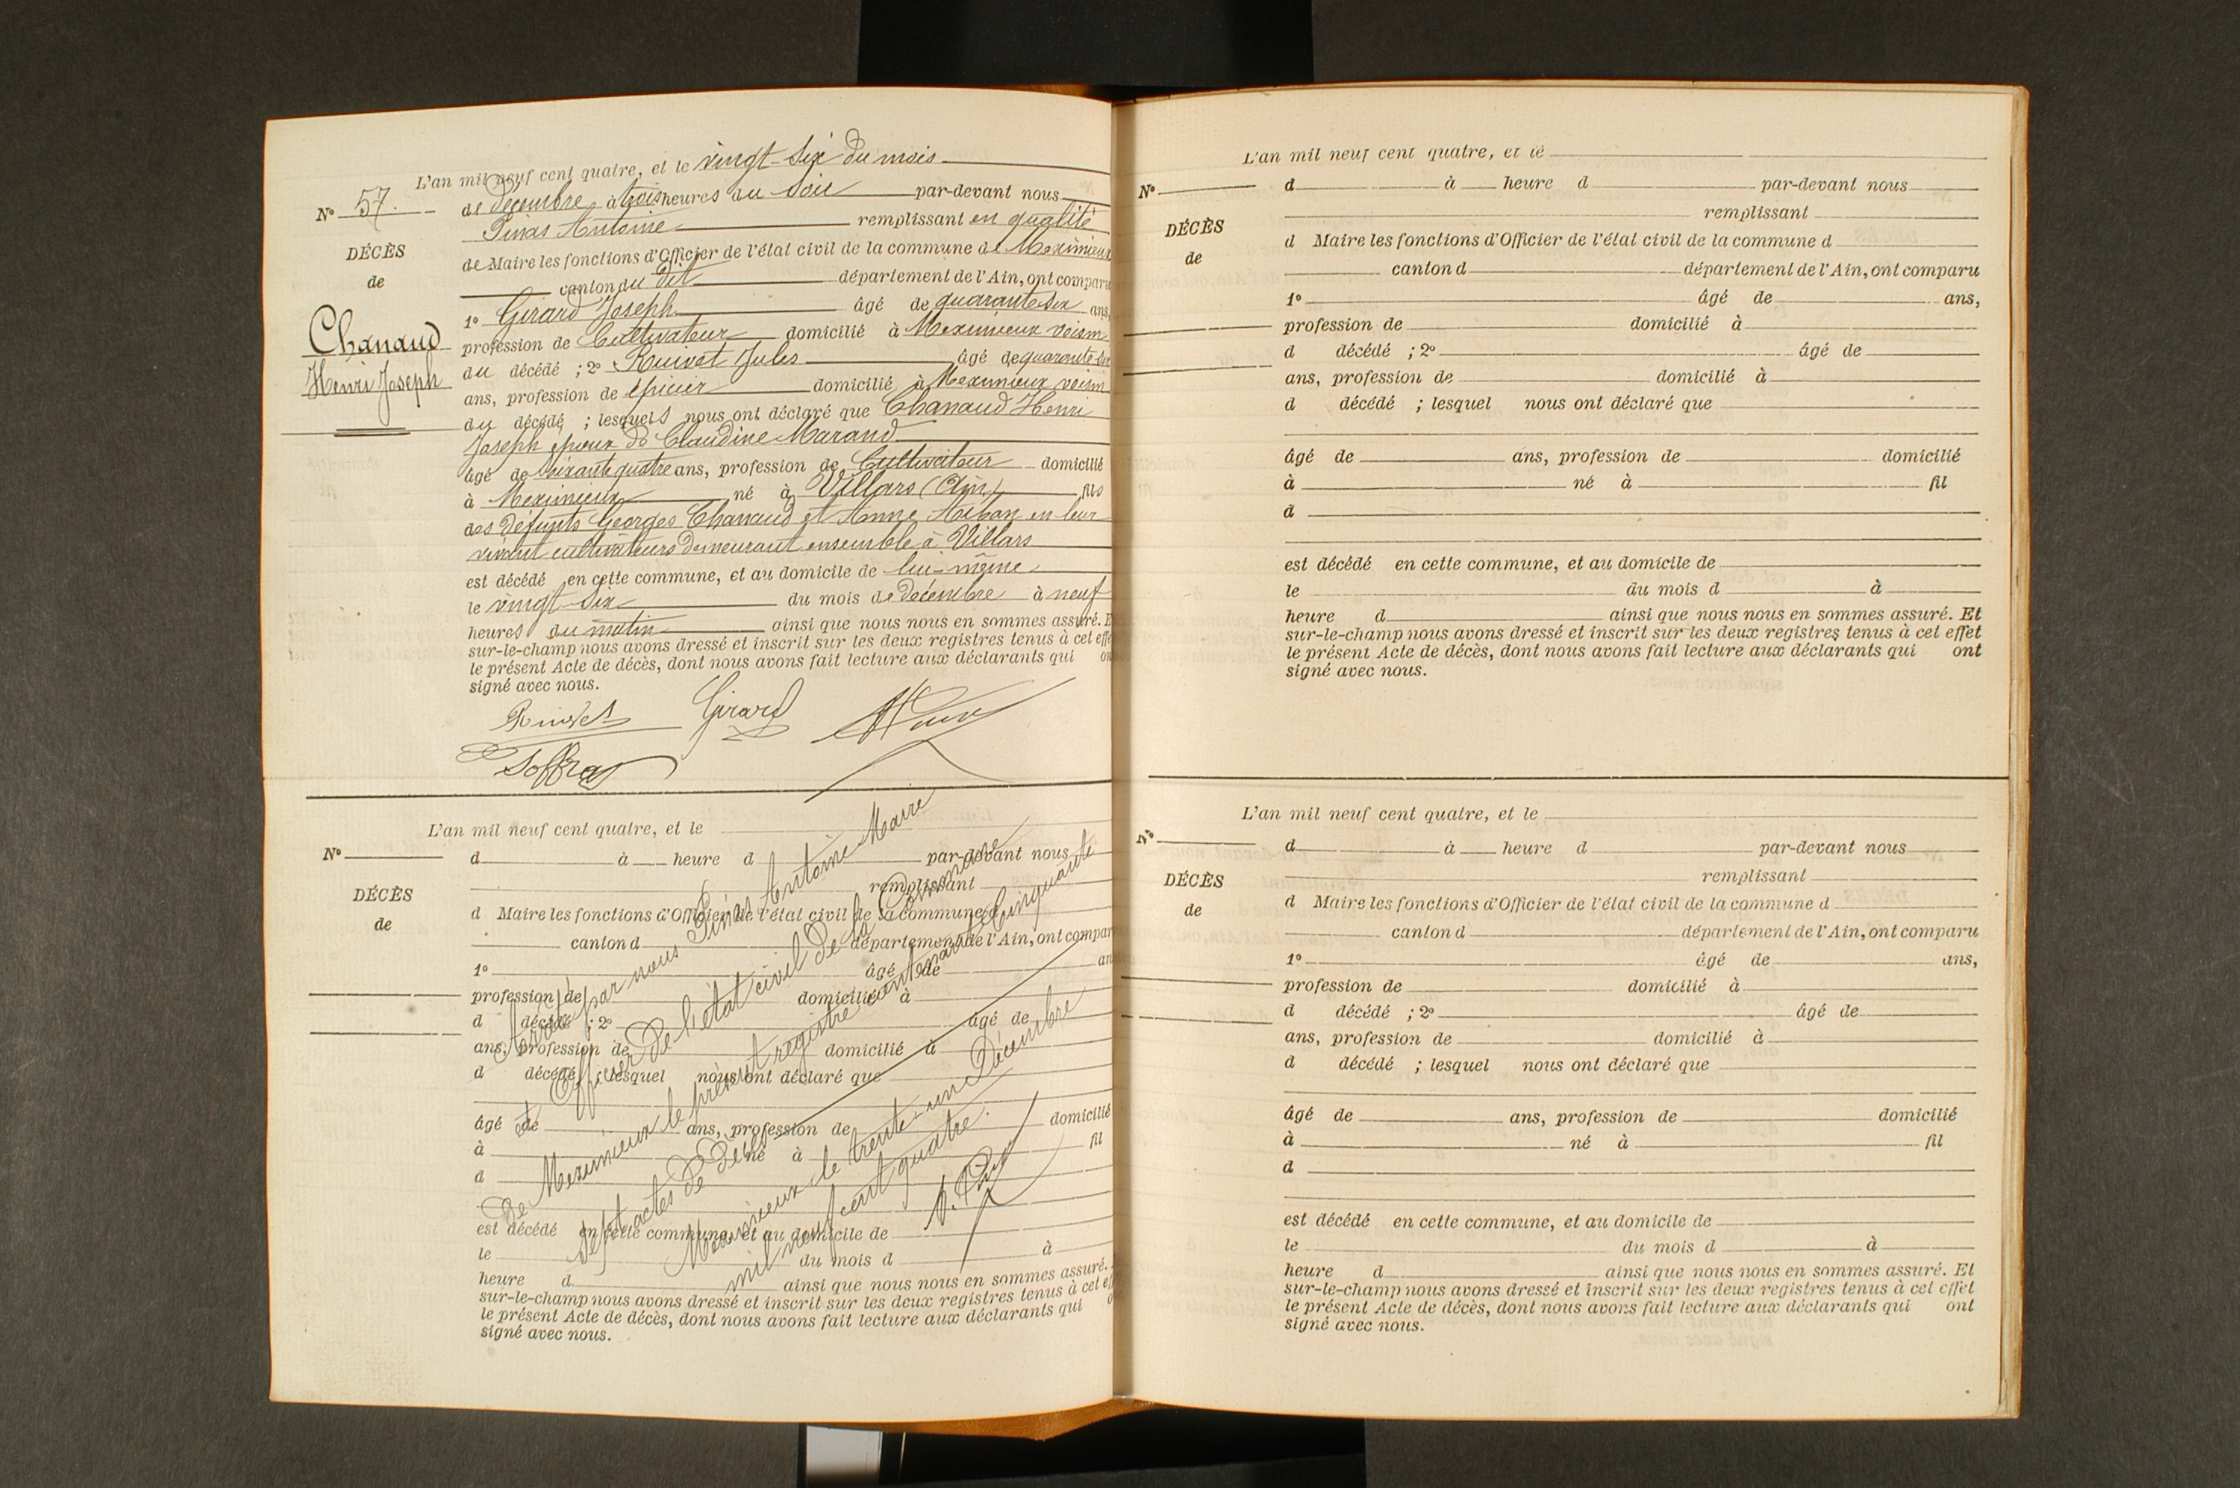 L'an mil neuf cent quatre, et le vingt-six du mois
de décembre à trois heures du soir par-devant nous
Pinas Antoine remplissant en qualité
de Maire les fonctions d'Officier de l'état civil de la commune de Meximieux
canton du dit département de l'Ain, ont comparu
1º Girard Joseph âgé de quarante six ans,
profession de Cultivateur domicilié à Meximieux voisin
du décédé ; 2º Ruivet Jules âgé de quarante six
ans, profession de épicier domicilié à Meximieux voisin
du décédé ; lesquels nous ont déclaré que Chanaud Henri
Joseph époux de Claudine Marand
âgé de soixante quatre ans, profession de Cultivateur domicilié
à Meximieux né à Villars (Ain) fils
des défunts Georges Chanaud et Anne en leur
vivant cultivateurs demeurant ensemble à Villars
est décédé en cette commune, et au domicile de lui-même
le vingt six du mois de décembre à neuf
heures du matin ainsi que nous nous en sommes assuré. E
sur-le-champ nous avons dressé et inscrit sur les deux registres tenus à cet effe
le présent Acte de décès, dont nous avons fait lecture aux déclarants qui on
signé avec nous.
Nº 57.
DÉCÈS
de
Chanaud
Henri Joseph
Ruivet Girard
Joffray
L'an mil neuf cent quatre, et le
Nº
DÉCÈS
de
d à heure d par-devant nous
remplissant
d Maire les fonctions d'Officier de l'état civil de la commune d
canton d département de l'Ain, ont compar
1º âgé de an
profession de domicilié à
d décédé ; 2º âgé de
ans, profession de domicilié à
d décédé ; lesquel nous ont déclaré que
âgé de ans, profession de domicilié
à né à fil
d
est décédé en cette commune, et au domicile de
le du mois d à
heure d ainsi que nous nous en sommes assuré.
sur-le-champ nous avons dressé et inscrit sur les deux registres tenus à cet ef
le présent Acte de décès, dont nous avons fait lecture aux déclarants qui o
signé avec nous.
Arrêté par nous Pinas Antoine Maire
et Officier de l'état civil de la Commune
de Meximieux le présent registre contenant Cinquante
sept actes de décès
Meximieux le trente-un Décembre
mil neuf cent quatre.
L'an mil neuf cent quatre, et le
Nº
DÉCÈS
de
d à heure d par-devant nous
remplissant
d Maire les fonctions d'Officier de l'état civil de la commune d
canton d département de l'Ain, ont comparu
1º âgé de ans,
profession de domicilié à
d décédé ; 2º âgé de
ans, profession de domicilié à
d décédé ; lesquel nous ont déclaré que
âgé de ans, profession de domicilié
à né à fil
d
est décédé en cette commune, et au domicile de
le du mois d à
heure d ainsi que nous nous en sommes assuré. Et
sur-le-champ nous avons dressé et inscrit sur les deux registres tenus à cet effet
le présent Acte de décès, dont nous avons fait lecture aux déclarants qui ont
signé avec nous.
L'an mil neuf cent quatre, et le
Nº
DÉCÈS
de
d à heure d par-devant nous
remplissant
d Maire les fonctions d'Officier de l'état civil de la commune d
canton d département de l'Ain, ont comparu
1º âgé de ans,
profession de domicilié à
d décédé ; 2º âgé de
ans, profession de domicilié à
d décédé ; lesquel nous ont déclaré que
âgé de ans, profession de domicilié
à né à fil
d
est décédé en cette commune, et au domicile de
le du mois d à
heure d ainsi que nous nous en sommes assuré. Et
sur-le-champ nous avons dressé et inscrit sur les deux registres tenus à cet effet
le présent Acte de décès, dont nous avons fait lecture aux déclarants qui ont
signé avec nous.